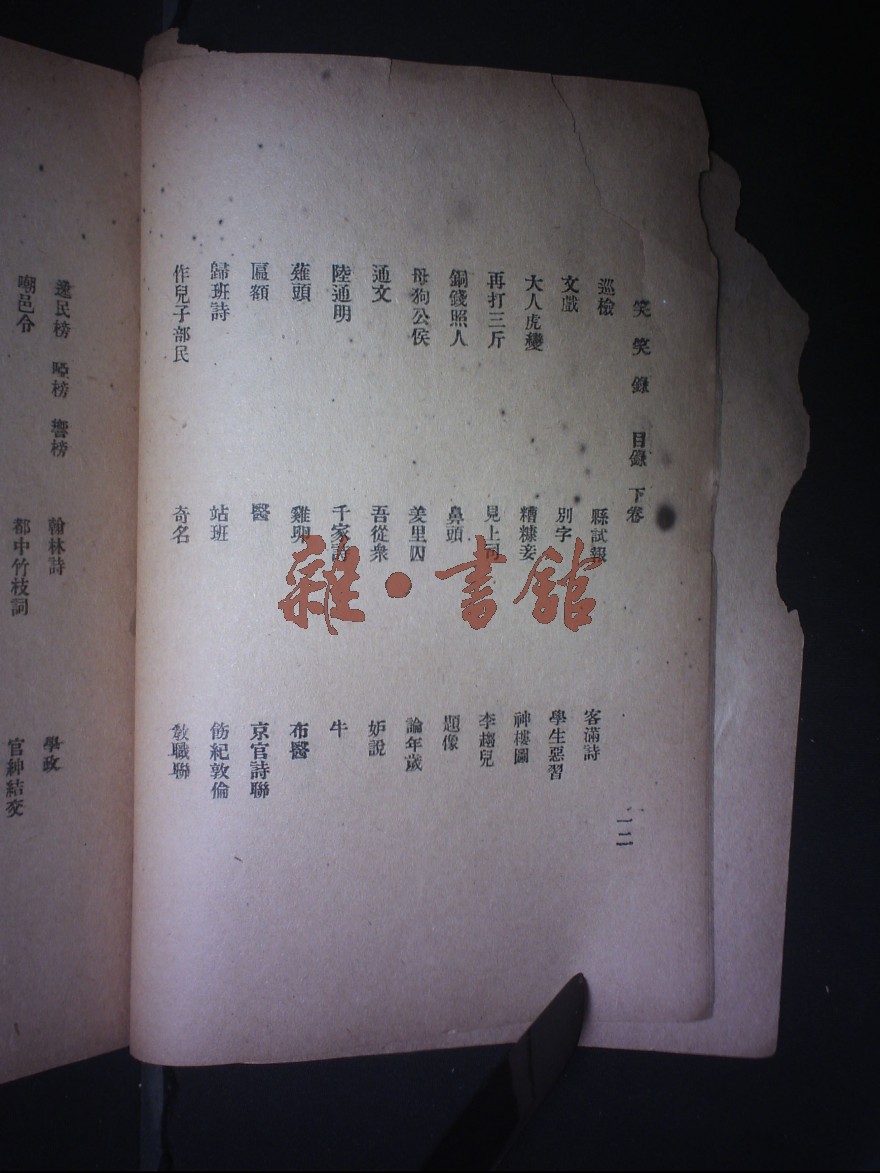 笑笑錄 目錄 下卷 一二
巡檢 縣試報 客滿詩
文戲 別字 學生惡習
大人虎變 糟糠妾 神樓圖
再打三斤 見上司 李趨兒
銅錢照人 鼻頭 題像
母狗公侯 羑里囚 論年歲
通文 吾從衆 妒說
陸通明 千家詩 牛
薤頭 雞卵 布醫
匾額 醫 京官詩聯
歸班詩 站班 飭紀敦倫
作兒子部民 奇名 敎職聯
逸民榜 啞榜 響榜 翰林詩 學政
嘲邑令 都中竹枝詞 官紳結交
雜·書館